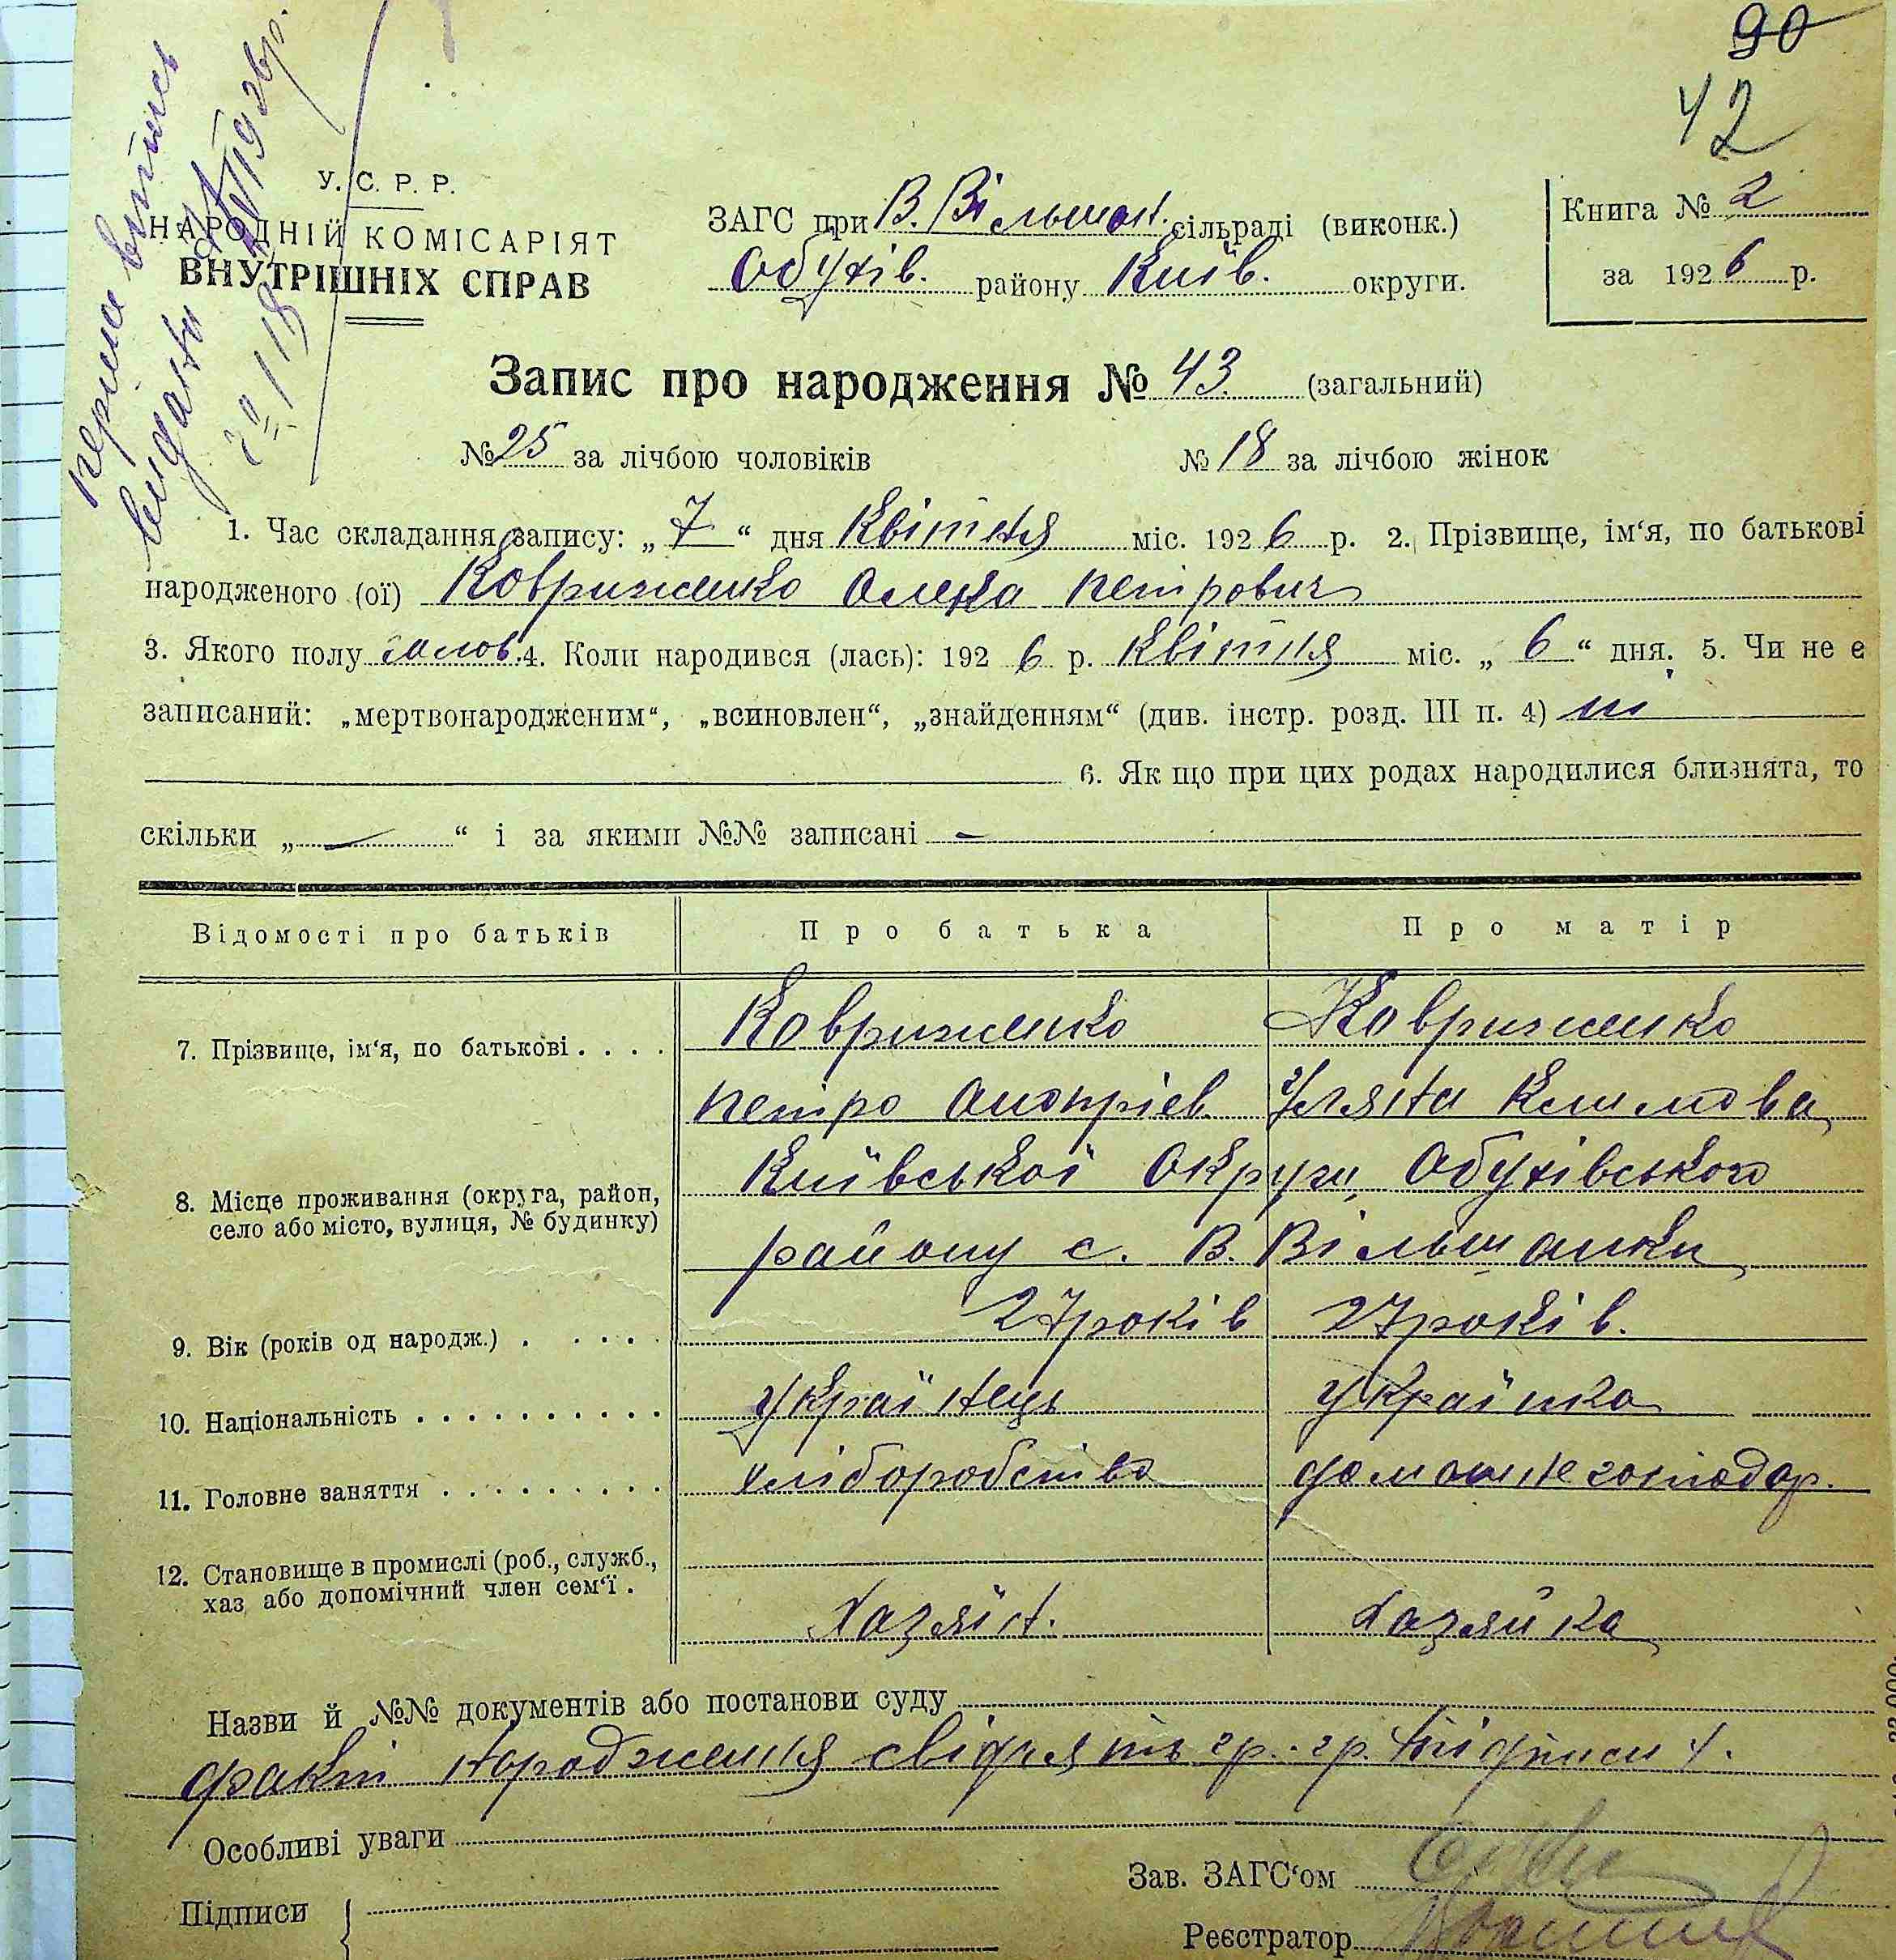 90
42
перша випись
видана
№ 118
У. С. Р. Р.
НАРОДНІЙ КОМІСАРІЯТ
ВНУТРІШНІХ СПРАВ
ЗАГС при В. Вільшан. сільраді (виконк.)
Обухів. району Київ. округи.
Книга № 2
за 1926 р.
Запис про народження № 43 (загальний)
№ 25 за лічбою чоловіків № 18 за лічбою жінок
1. Час складання запису: „7“ дня Квітня міс. 1926 р. 2. Прізвище, ім‘я, по батькові
народженого (ої) Ковриженко Олекса Петрович
3. Якого полу чолов. 4. Коли народився (лась): 1926 р. Квітня міс. „6“ дня. 5. Чи не є
записаний: „мертвонародженим“, „всиновлен“, „знайденням“ (див. інстр. розд. III п. 4) ні
6. Як що при цих родах народилися близнята, то
скільки „—“ і за якими №№ записані —
Відомості про батьків Про батька Про матір
7. Прізвище, ім‘я, по батькові . . . . Ковриженко Ковриженко
Петро Оноприєв Уляна Климова
8. Місце проживання (округа, район, Київської Округи, Обухівського
село або місто, вулиця, № будинку) району с. В. Вільшанки
9. Вік (років од народж.) . . . . . 27 років 27 років.
10. Національність . . . . . . . . . . Українець Українка
11. Головне заняття . . . . . . . . . хліборобство домашнє господар.
12. Становище в промислі (роб., служб.,
хаз. або допомічний член сем‘ї . Хазяїн. Хазяйка
Назви й №№ документів або постанови суду
факт народження свідчять гр.-гр.
Особливі уваги
Зав. ЗАГС‘ом
Підписи
Реєстратор